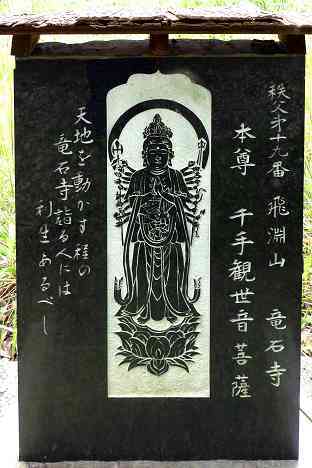 秩父第十九番 飛淵山 竜石寺
本尊 千手観世音菩薩
天地を動かす程の
竜石寺詣る人には
利生あるべし